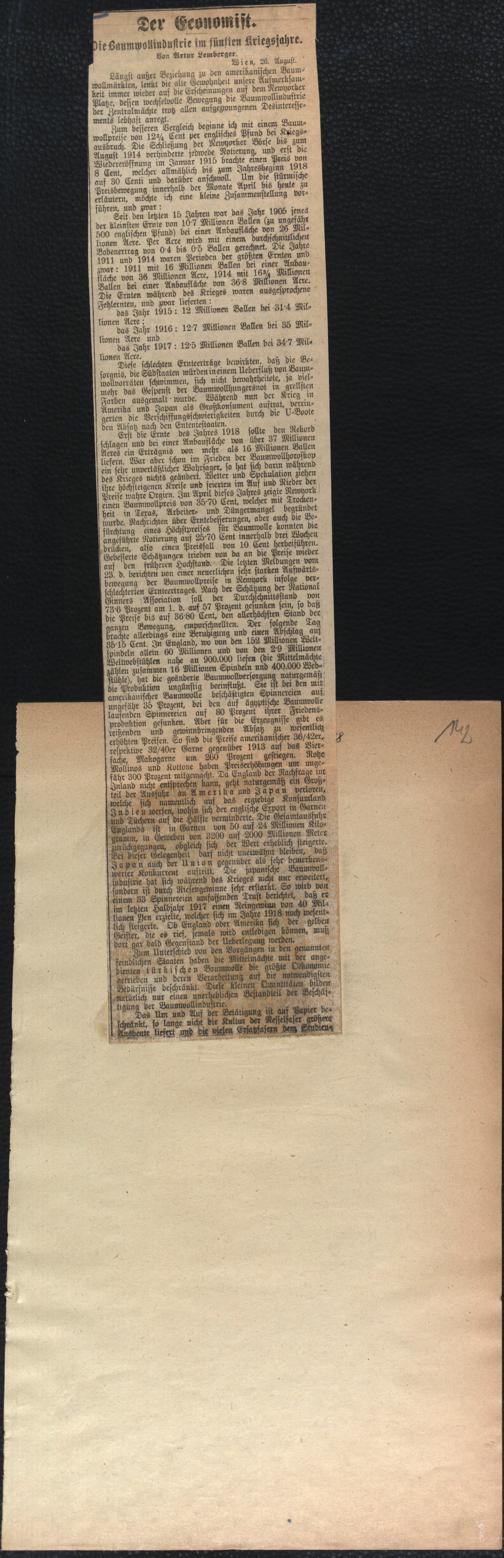 Der Economist.
Die Baumwollindustrie im fünften Kriegsjahre.
Von Artur Lemberger.
Wien, 26. August.
Längst außer Beziehung zu den amerikanischen Baum-
wollmärkten, lenkt die alte Gewohnheit unsere Aufmerksam-
keit immer wieder auf die Erscheinungen auf dem Newyorker
Platze, dessen wechselvolle Bewegung die Baumwollindustrie
der Zentralmächte trotz allen aufgezwungenen Desinteresse-
ments lebhaft anregt.
Zum besseren Vergleich beginne ich mit einem Baum-
wollpreise von 12¾ Cent per englisches Pfund bei Kriegs-
ausbruch. Die Schließung der Newyorker Börse bis zum
August 1914 verhinderte jedwede Notierung, und erst die
Wiedereröffnung im Januar 1915 brachte einen Preis von
8 Cent, welcher allmählich bis zum Jahresbeginn 1918
auf 30 Cent und darüber anschwoll. Um die stürmische
Preisbewegung innerhalb der Monate April bis heute zu
erläutern, möchte ich eine kleine Zusammenstellung vor-
führen, und zwar:
Seit den letzten 15 Jahren war das Jahr 1905 jenes
der kleinsten Ernte von 10·7 Millionen Ballen (zu ungefähr
500 englischen Pfund) bei einer Anbaufläche von 26 Mil-
lionen Acre. Per Acre wird mit einem durchschnittlichen
Bodenertrag von 0·4 bis 0·5 Ballen gerechnet. Die Jahre
1911 und 1914 waren Perioden der größten Ernten und
zwar: 1911 mit 16 Millionen Ballen bei einer Anbau-
fläche von 36 Millionen Acre, 1914 mit 16¾ Millionen
Ballen bei einer Anbaufläche von 36·8 Millionen Acre.
Die Ernten während des Krieges waren ausgesprochene
Fehlernten, und zwar lieferten:
das Jahr 1915: 12 Millionen Ballen bei 31·4 Mil-
lionen Acre;
das Jahr 1916: 12·7 Millionen Ballen bei 35 Mil-
lionen Acre und
das Jahr 1917: 12·5 Millionen Ballen bei 34·7 Mil-
lionen Acre.
Diese schlechten Ernteerträge bewirkten, daß die Be-
sorgnis, die Südstaaten würden in einem Ueberfluß von Baum-
wollvorräten schwimmen, sich nicht bewahrheitete, ja viel-
mehr das Gespenst der Baumwollhungersnot in grellsten
Farben ausgemalt wurde. Während nun der Krieg in
Amerika und Japan als Großkonsument auftrat, verrin-
gerten die Verschiffungsschwierigkeiten durch die U-Boote
den Absatz nach den Ententestaaten.
Erst die Ernte des Jahres 1918 sollte den Rekord
schlagen und bei einer Anbaufläche von über 37 Millionen
Acres ein Erträgnis von mehr als 16 Millionen Ballen
liefern. War aber schon im Frieden der Baumwollhoroskop
ein sehr unverläßlicher Wahrsager, so hat sich darin während
des Krieges nichts geändert. Wetter und Spekulation ziehen
ihre höchsteigenen Kreise und feierten im Auf und Nieder der
Preise wahre Orgien. Im April dieses Jahres zeigte Newyork
einen Baumwollpreis von 35·70 Cent, welcher mit Trocken-
heit in Texas, Arbeiter- und Düngermangel begründet
wurde. Nachrichten über Erntebesserungen, aber auch die Be-
fürchtung eines Höchstpreises für Baumwolle konnten die
angeführte Notierung auf 25·70 Cent innerhalb drei Wochen
drücken, also einen Preisfall von 10 Cent herbeiführen.
Gebesserte Schätzungen trieben von da an die Preise wieder
auf den früheren Hochstand. Die letzten Meldungen vom
23. d. berichten von einer neuerlichen sehr starken Aufwärts-
bewegung der Baumwollpreise in Newyork infolge ver-
schlechterten Ernteertrages. Nach der Schätzung der National
Ginners Association soll der Durchschnittsstand von
73·6 Prozent am 1. d. auf 57 Prozent gesunken sein, so daß
die Preise bis auf 36·80 Cent, den allerhöchsten Stand der
ganzen Bewegung, emporschnellten. Der folgende Tag
brachte allerdings eine Beruhigung und einen Abschlag auf
35·15 Cent. In England, wo von den 152 Millionen Welt-
spindeln allein 60 Millionen und von den 2·9 Millionen
Weltwebstühlen nahe an 900.000 liefen (die Mittelmächte
zählten zusammen 16 Millionen Spindeln und 400.000 Web-
stühle), hat die geänderte Baumwollversorgung naturgemäß
die Produktion ungünstig beeinflußt. Sie ist bei den mit
amerikanischer Baumwolle beschäftigten Spinnereien auf
ungefähr 35 Prozent, bei den auf ägyptische Baumwolle
laufenden Spinnereien auf 80 Prozent ihrer Friedens-
produktion gesunken. Aber für die Erzeugnisse gibt es
reißenden und gewinnbringenden Absatz zu wesentlich
erhöhten Preisen. So sind die Preise amerikanischer 36/42er,
respektive 32/40er Garne gegenüber 1913 auf das Vier-
fache, Makogarne um 260 Prozent gestiegen. Rohe
Mollinos und Kottone haben Preiserhöhungen um unge-
fähr 300 Prozent mitgemacht. Da England der Nachfrage im
Inland nicht entsprechen kann, geht naturgemäß ein Groß-
teil der Ausfuhr an Amerika und Japan verloren,
welche sich namentlich auf das ergiebige Konsumland
Indien werfen, wohin sich der englische Export in Garnen
und Tüchern auf die Hälfte verminderte. Die Gesamtausfuhr
Englands ist in Garnen von 50 auf 24 Millionen Kilo-
gramm, in Geweben von 3200 auf 2000 Millionen Meter
zurückgegangen, obgleich sich der Wert erheblich steigerte.
Bei dieser Gelegenheit darf nicht unerwähnt bleiben, daß
Japan auch der Union gegenüber als sehr bemerkens-
werter Konkurrent auftritt. Die japanische Baumwoll-
industrie hat sich während des Krieges nicht nur erweitert,
sondern ist durch Riesengewinne sehr erstarkt. So wird von
einem 33 Spinnereien umfassenden Trust berichtet, daß er
im letzten Halbjahr 1917 einen Reingewinn von 40 Mil-
lionen Yen erzielte, welcher sich im Jahre 1918 noch wesent-
lich steigerte. Ob England oder Amerika sich der gelben
Geister, die es rief, jemals wird entledigen können, muß
dort gar bald Gegenstand der Ueberlegung werden.
Zum Unterschied von den Vorgängen in den genannten
feindlichen Staaten haben die Mittelmächte mit der ange-
dienten türkischen Baumwolle die größte Oekonomie
getrieben und deren Verarbeitung auf die notwendigsten
Bedürfnisse beschränkt. Diese kleinen Quantitäten bilden
natürlich nur einen unerheblichen Bestandteil der Beschäf-
tigung der Baumwollindustrie.
Das Um und Auf der Betätigung ist auf Papier be-
schränkt, so lange nicht die Kultur der Nesselfaser größere
Ausbeute liefert und die vielen Ersatzfasern dem Studien-